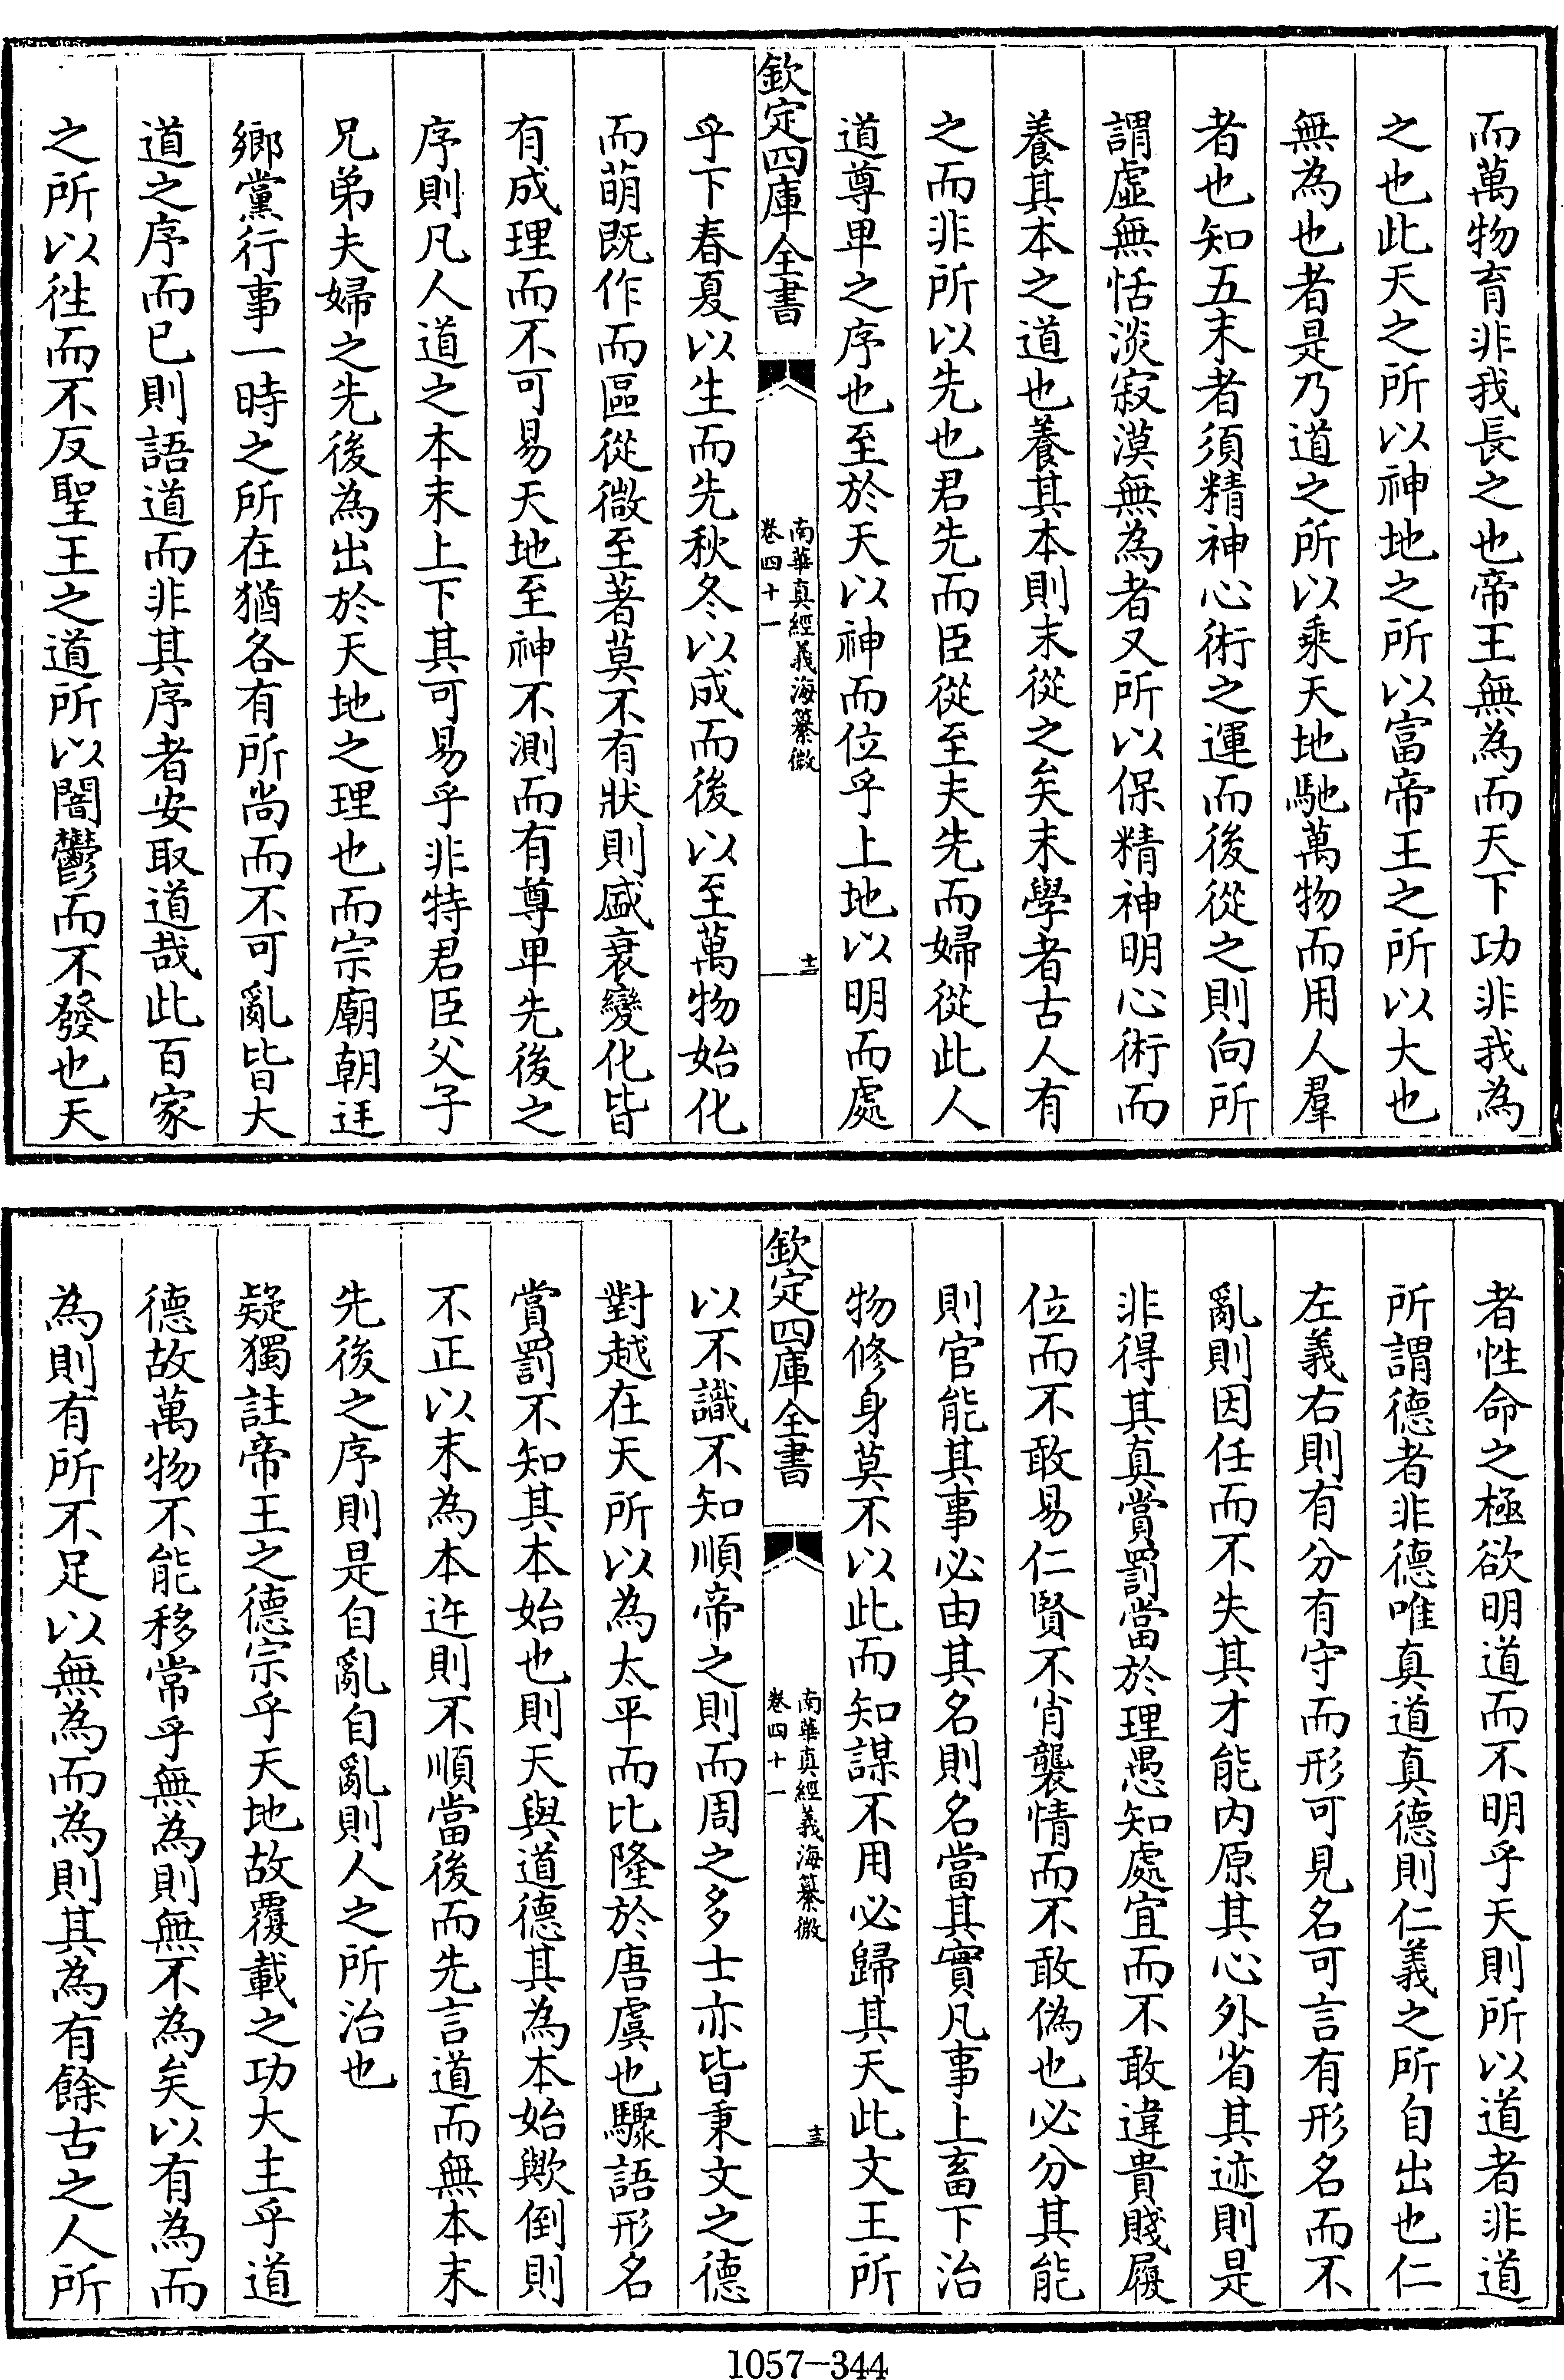 而萬物育非我長之也帝王無為而天下功非我為
之也此天之所以神地之所以富帝王之所以大也
無為也者是乃道之所以乘天地馳萬物而用人羣
者也知五末者須精神心術之運而後從之則向所
謂虛無恬淡寂漠無為者又所以保精神明心術而
養其本之道也養其本則末從之矣末學者古人有
之而非所以先也君先而臣從至夫先而婦從此人
道尊卑之序也至於天以神而位乎上地以明而處
欽定四庫全書
南華真經義海纂微
卷四十一
十二
乎下春夏以生而先秋冬以成而後以至萬物始化
而萌既作而區從微至著莫不有狀則盛衰變化皆
有成理而不可易天地至神不測而有尊卑先後之
序則凡人道之本末上下其可易乎非特君臣父子
兄弟夫婦之先後為出於天地之理也而宗廟朝廷
鄉黨行事一時之所在猶各有所尚而不可亂皆大
道之序而已則語道而非其序者安取道哉此百家
之所以徃而不反聖王之道所以闇鬱而不發也天
者性命之極欲明道而不明乎天則所以道者非道
所謂德者非德唯真道真德則仁義之所自出也仁
左義右則有分有守而形可見名可言有形名而不
亂則因任而不失其才能内原其心外省其迹則是
非得其真賞罰當於理愚知處宜而不敢違貴賤履
位而不敢易仁賢不肖襲情而不敢偽也必分其能
則官能其事必由其名則名當其實凡事上畜下治
物修身莫不以此而知謀不用必歸其天此文王所
欽定四庫全書
南華真經義海纂微
卷四十一
十三
以不識不知順帝之則而周之多士亦皆秉文之德
對越在天所以為太平而比隆於唐虞也驟語形名
賞罰不知其本始也則天與道德其為本始歟倒則
不正以末為本迕則不順當後而先言道而無本末
先後之序則是自亂自亂則人之所治也
疑獨註帝王之德宗乎天地故覆載之功大主乎道
德故萬物不能移常乎無為則無不為矣以有為而
為則有所不足以無為而為則其為有餘古之人所
1057-344